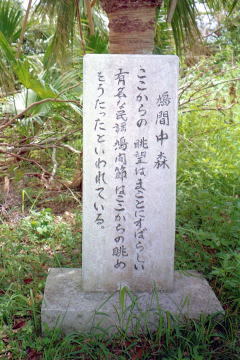 鳩間中森
ここからの眺望はまことにすばらしい
有名な民謡鳩間節はここからの眺め
をうたったといわれている。